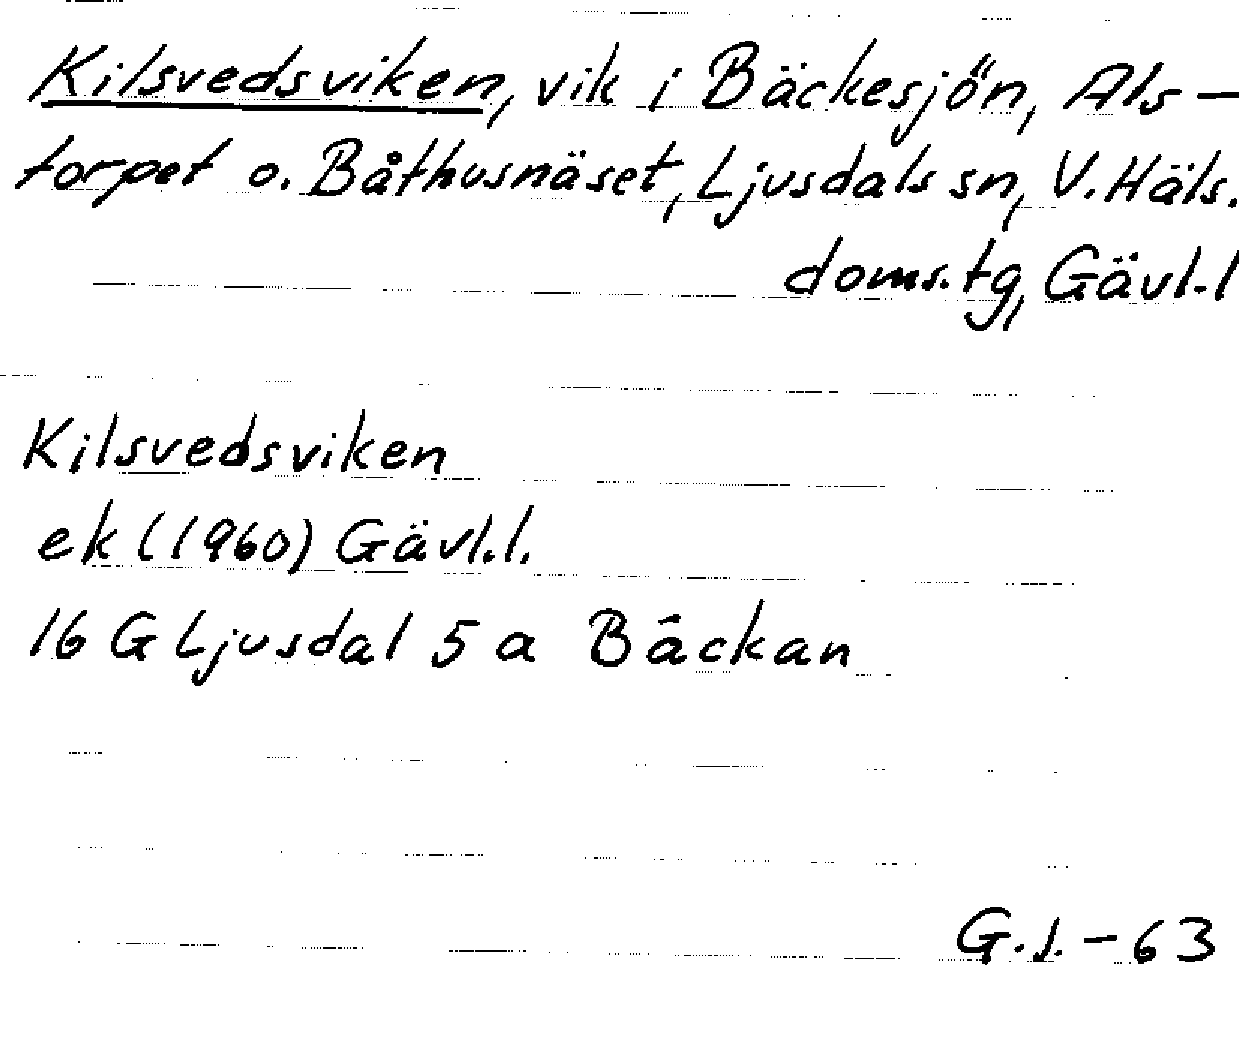 Kilsvedsviken, vik i Bäckesjön, Als-
torpet o. Båthusnäset, Ljusdals sn, V. Häls.
doms.tg, Gävl.l
Kilsvedsviken
ek (1960) Gävl.l.
16 G Ljusdal 5 a Bäckan
G.l. - 63